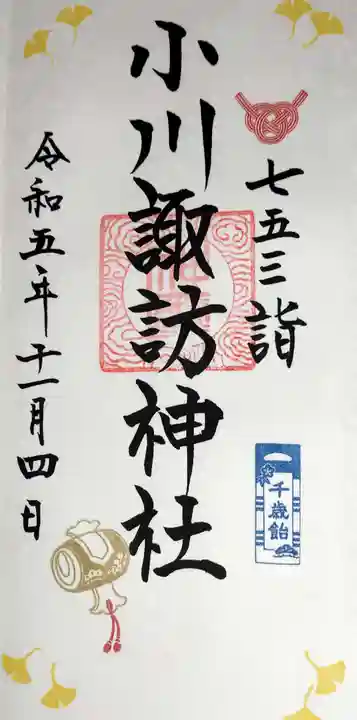 七五三詣
小川諏訪神社
令和五年十一月四日
千歳飴